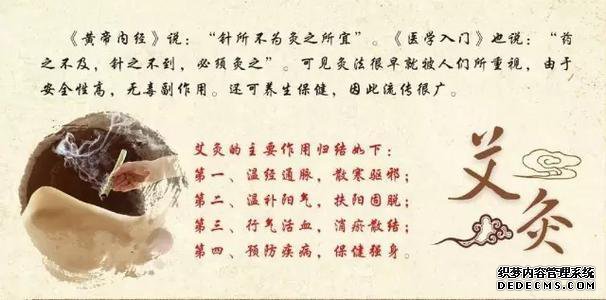 《黄帝内经》说：“针所不为灸之所宜”。《医学入门》也说：“药
之不及，针之不到，必须灸之”。可见灸法很早就被人们所重视，由于
安全性高，无毒副作用。还可养生保健，因此流传很广。
艾灸的主要作用归结如下：
第一、温经通脉，散寒驱邪；
第二、温补阳气，扶阳固脱；
第三、行气活血，消瘀散结；
第四、预防疾病，保健强身。
艾灸
织梦内容管理系统
DEDECMS.COM